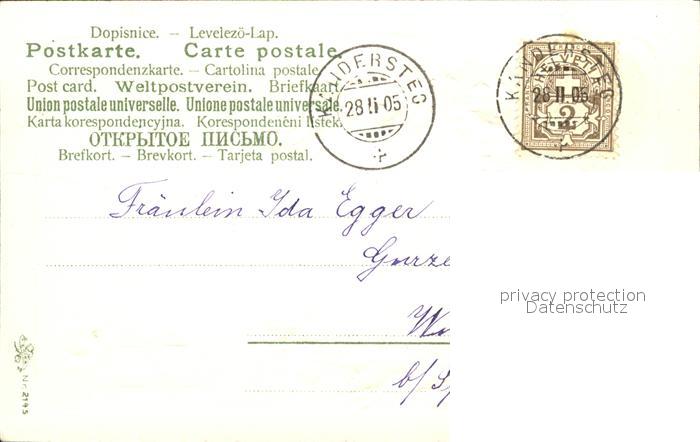 Dopisnice. – Levelező-Lap.
Postkarte. Carte postale.
Correspondenzkarte. – Cartolina postale
Post card. Weltpostverein. Briefkaart.
Union postale universelle. Unione postale universale.
Karta korespondencyjna. Korespondenční lístek.
ОТКРЫТОЕ ПИСЬМО.
Brefkort. – Brevkort. – Tarjeta postal.
KANDERSTEG
28 II 05
KANDERSTEG
28 II 05
HELVETIA
2
Fräulein Ida Egger
Gurze
W
b/S
privacy protection
Datenschutz
Nr. 2145